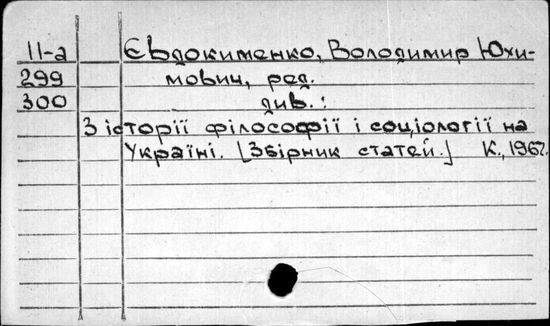 ІІ-а Євдокименко, Володимир Юхи-
299 мович, ред.
300 див.:
З історії філософії і соціології на
Україні. [Збірник статей.] К., 1967.